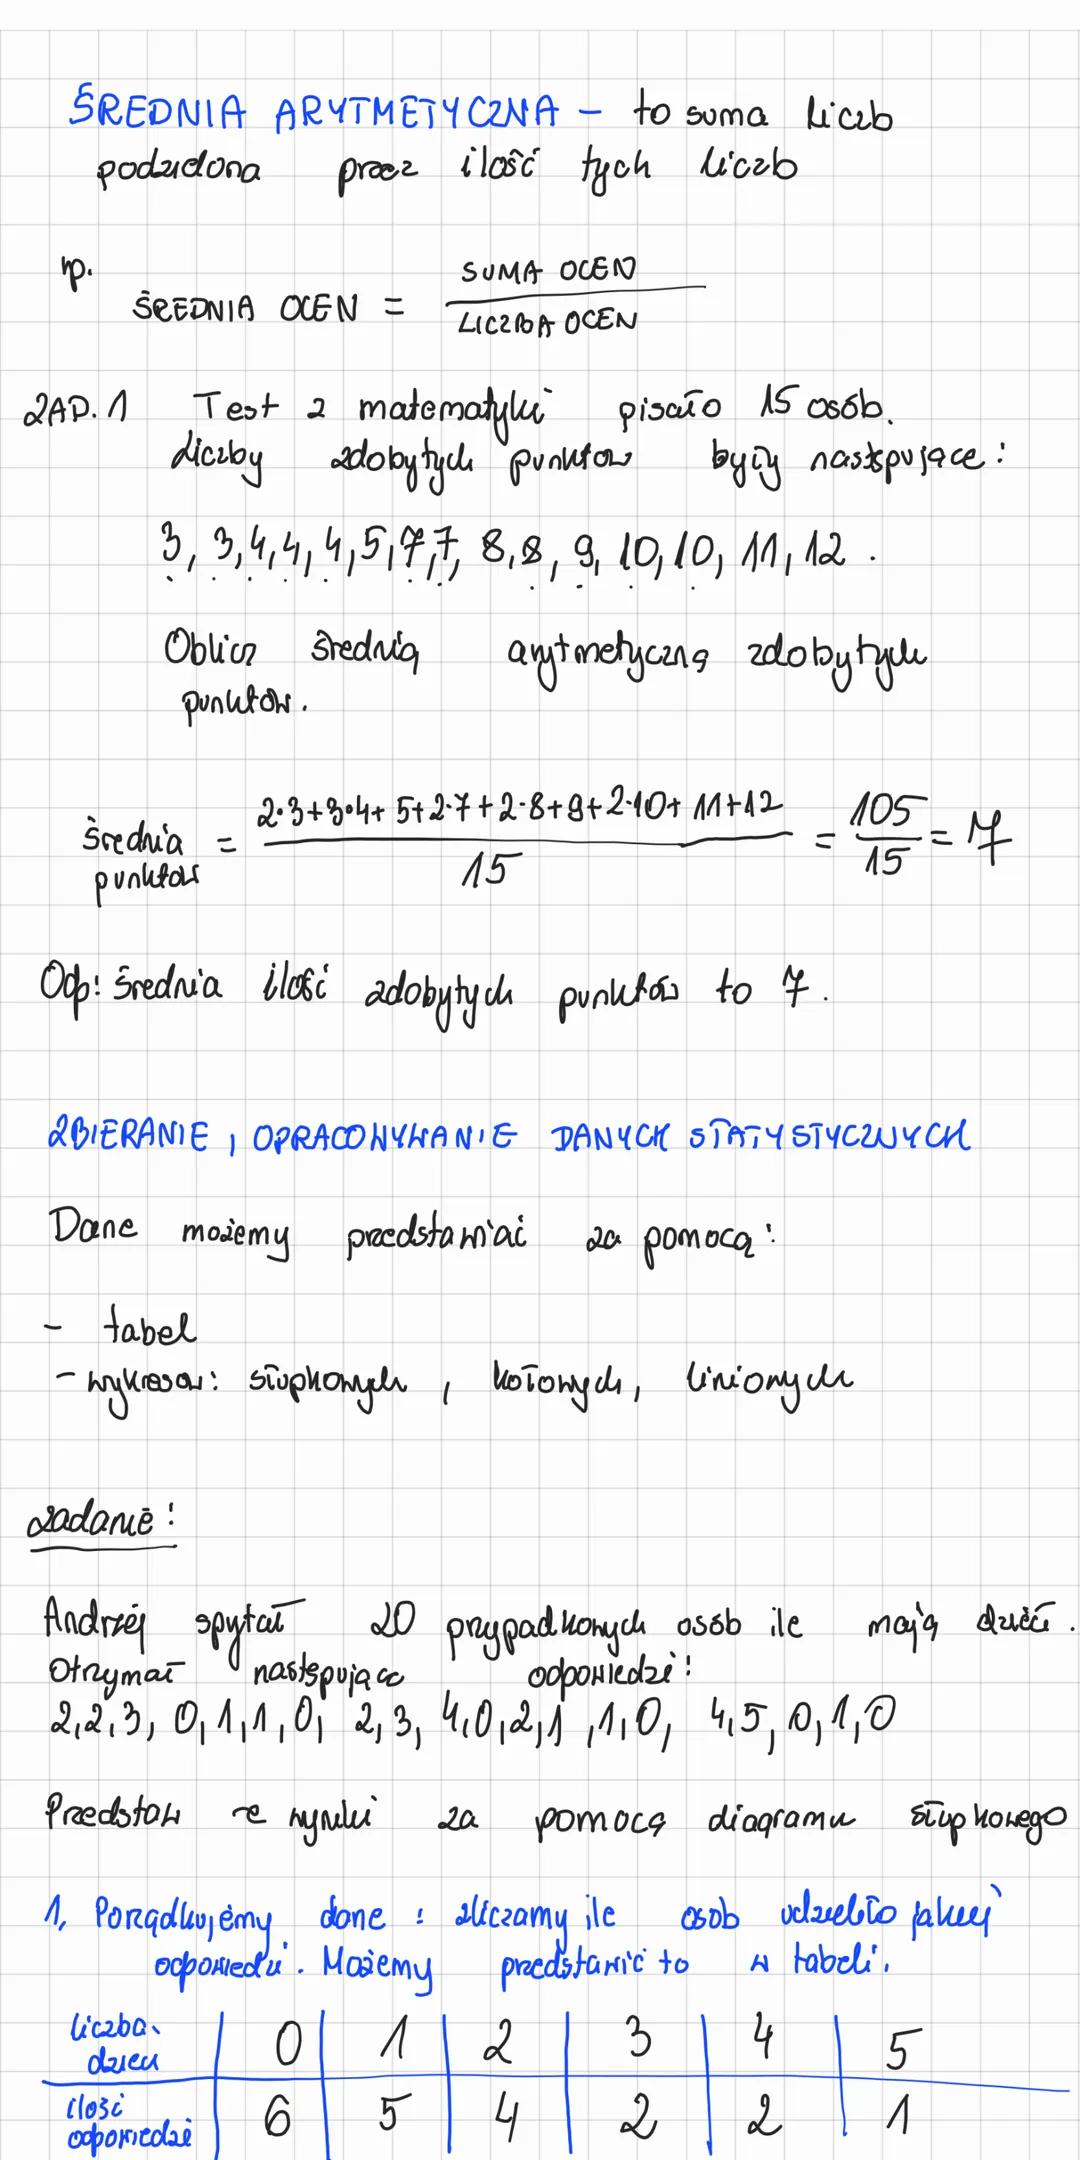 ŚREDNIA ARYTMETYCZNA - to suma liczb
podzielona przez ilość tych liczb
np.
ŚREDNIA OCEN = SUMA OCEN
LICZBA OCEN
ZAD. 1 Test z matematyki pisało 15 osób.
Liczby zdobytych punktów były następujące:
3, 3, 4, 4, 4, 5, 7, 7, 8, 8, 9, 10, 10, 11, 12.
Oblicz średnią arytmetyczną zdobytych
punktów.
średnia punktów = 2·3+3·4+5+2·7+2·8+9+2·10+11+12 = 105 = 7
15 15
Odp: średnia ilość zdobytych punktów to 7.
ZBIERANIE, OPRACOWYWANIE DANYCH STATYSTYCZNYCH
Dane możemy przedstawiać za pomocą:
- tabel
- wykresów: słupkowych, kołowych, liniowych
zadanie:
Andrzej spytał 20 przypadkowych osób ile mają dzieci.
Otrzymał następujące odpowiedzi:
2, 2, 3, 0, 1, 1, 0, 2, 3, 4, 0, 2, 1, 1, 0, 4, 5, 0, 1, 0
Przedstaw te wyniki za pomocą diagramu słupkowego
1, Porządkujemy dane: zliczamy ile osób udzieliło jakiej
odpowiedzi. Możemy przedstawić to w tabeli.
liczba dzieci 0 1 2 3 4 5
ilość odpowiedzi 6 5 4 2 2 1